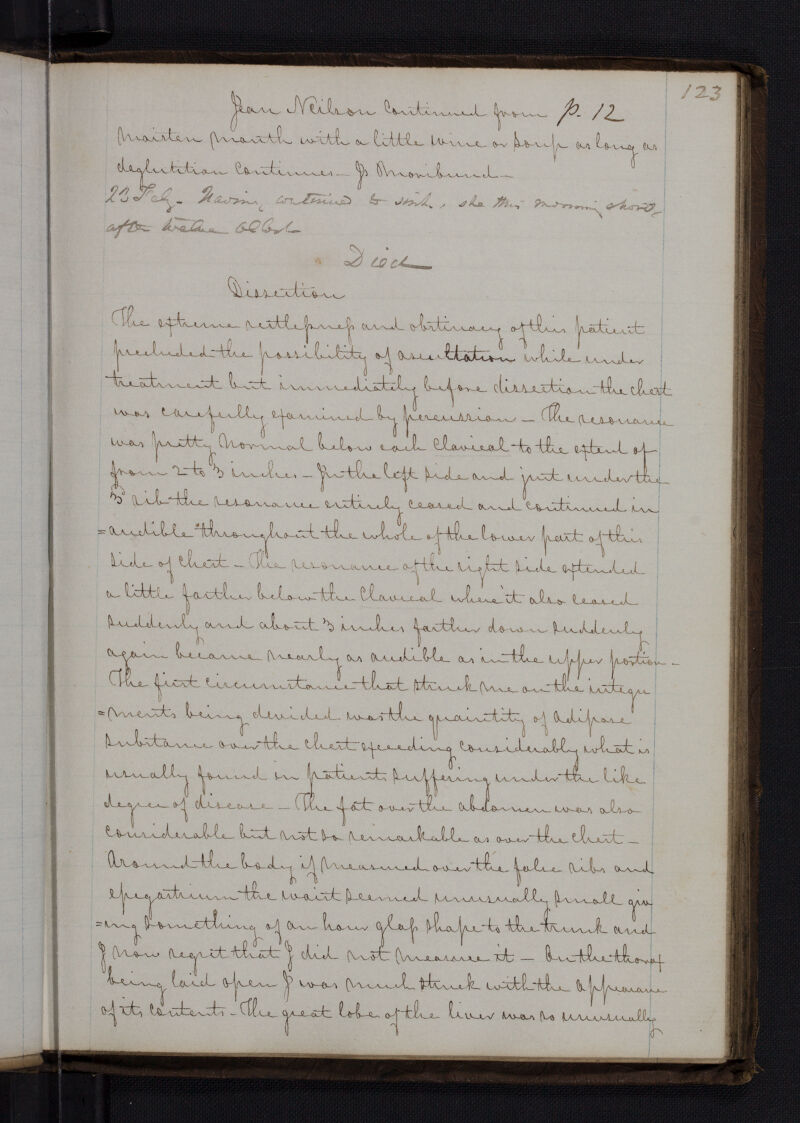 123
Jean Neilson Continued from p. 12
Moisten Mouth with a little Wine or Soup as long as
deglutition Continues – Is Moribund –
23 Feby. Having continued to sink, she this morning short-
after twelve OClock
Died
Dissection
The extreme restlessness and obstinacy of this patient
precluded the possibility of ascultation while under
treatment but immediately before dissection the chest
was carefully examined by percussion – The resonance
was pretty Normal below each Clavical to the extent of
from 2 to 3 inches – In the left side and just under the
3d rib the resonance entirely ceased and continued in
=audible throughout the whole of the lower part of this
side of chest – The resonance of the right side extended
a little farther below the Clavical where it also ceased
suddenly and about 3 inches farther down suddenly
again became nearly as audible as in the upper portion –
The first Circumstance that struck me on the integu
=ments being devided was the quaintity of Adipose
substance over the chest exceeding considerably what is
usually found in patients suffering under the like
degree of disease – The fat over the abdomen was also
Considerable but not so remarkable as over the chest –
Around the body if measured over the false ribs and
epigastrium the waist seemed unusually small giv
=ing something of an hour glass shape to the trunk and
I now regret that I did not measure it – On the thorax
being laid open I was much struck with the appearance
of its contents – The great lobe of the liver was so unusually